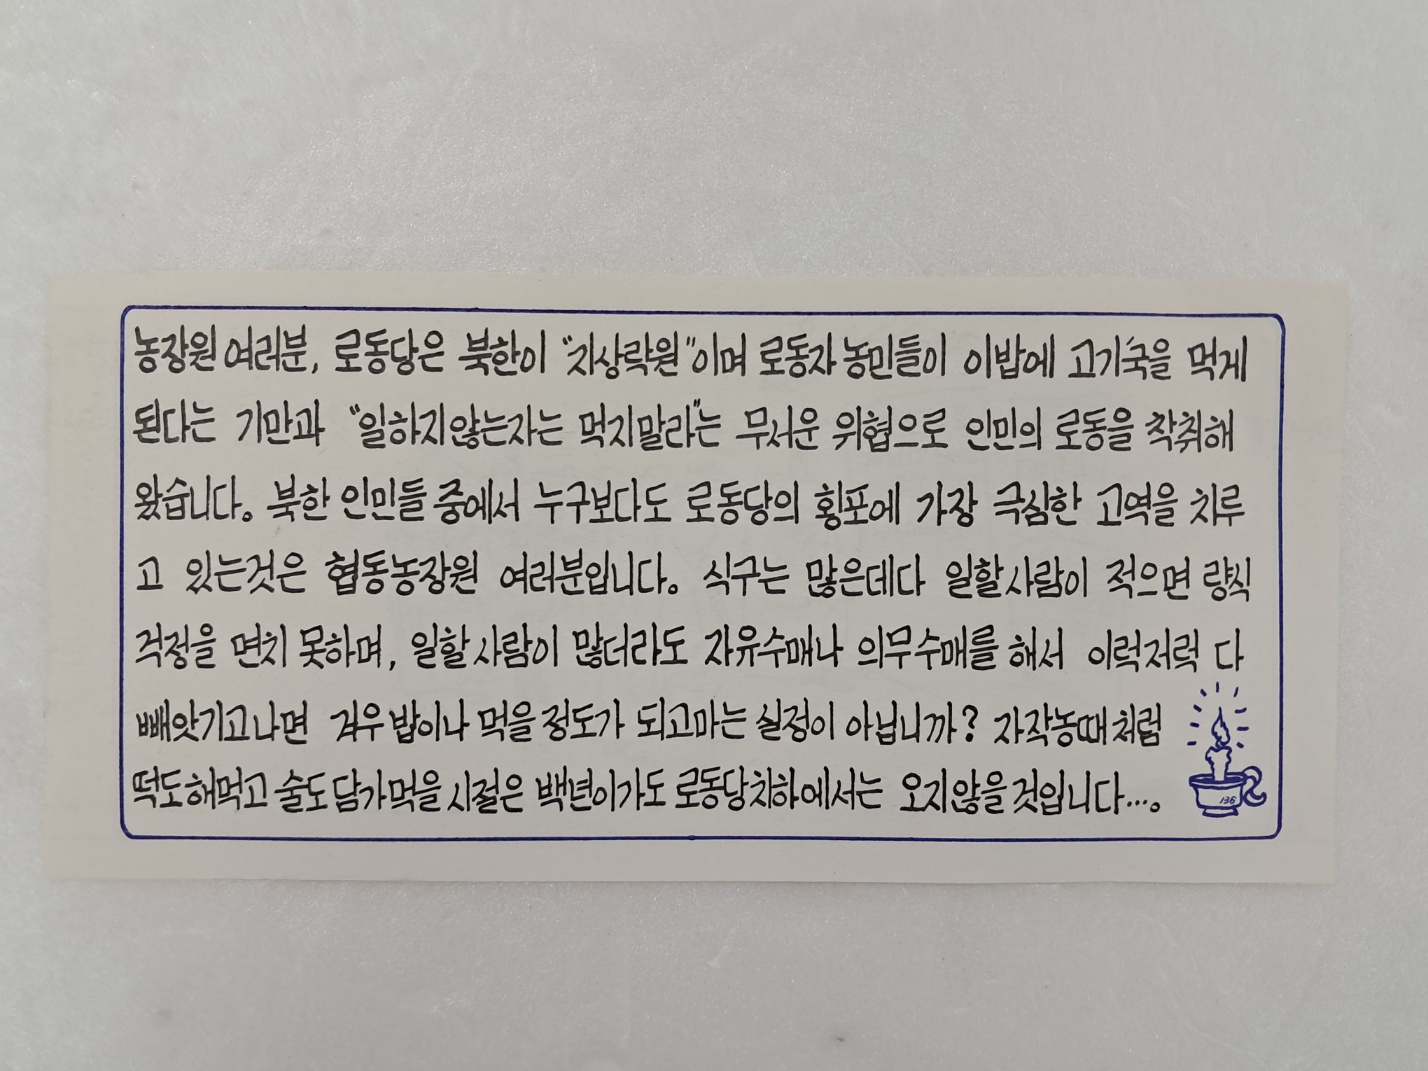 농장원 여러분, 로동당은 북한이 "지상락원"이며 로동자 농민들이 이밥에 고기국을 먹게
된다는 기만과 "일하지않는자는 먹지말라"는 무서운 위협으로 인민의 로동을 착취해
왔습니다。 북한 인민들 중에서 누구보다도 로동당의 횡포에 가장 극심한 고역을 치루
고 있는것은 협동농장원 여러분입니다。 식구는 많은데다 일할사람이 적으면 량식
걱정을 면치 못하며, 일할사람이 많더라도 자유수매나 의무수매를 해서 이럭저럭 다
빼앗기고나면 겨우 밥이나 먹을정도가 되고마는 실정이 아닙니까? 자작농때처럼
떡도해먹고 술도담가먹을시절은 백년이가도 로동당치하에서는 오지않을것입니다…。
136